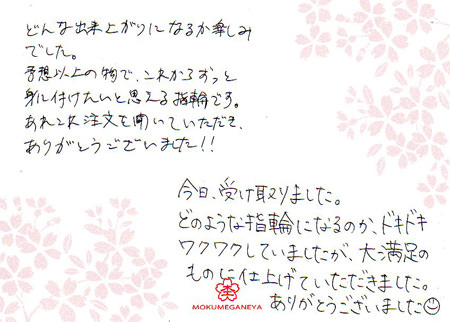 どんな出来上がりになるか楽しみ
でした。
予想以上の物で、これからずっと
身に付けたいと思える指輪です。
あれこれ注文を聞いていただき、
ありがとうございました!!
今日、受け取りました。
どのような指輪になるのか、ドキドキ
ワクワクしていましたが、大満足の
ものに仕上げていただきました。
ありがとうございました
MOKUMEGANEYA